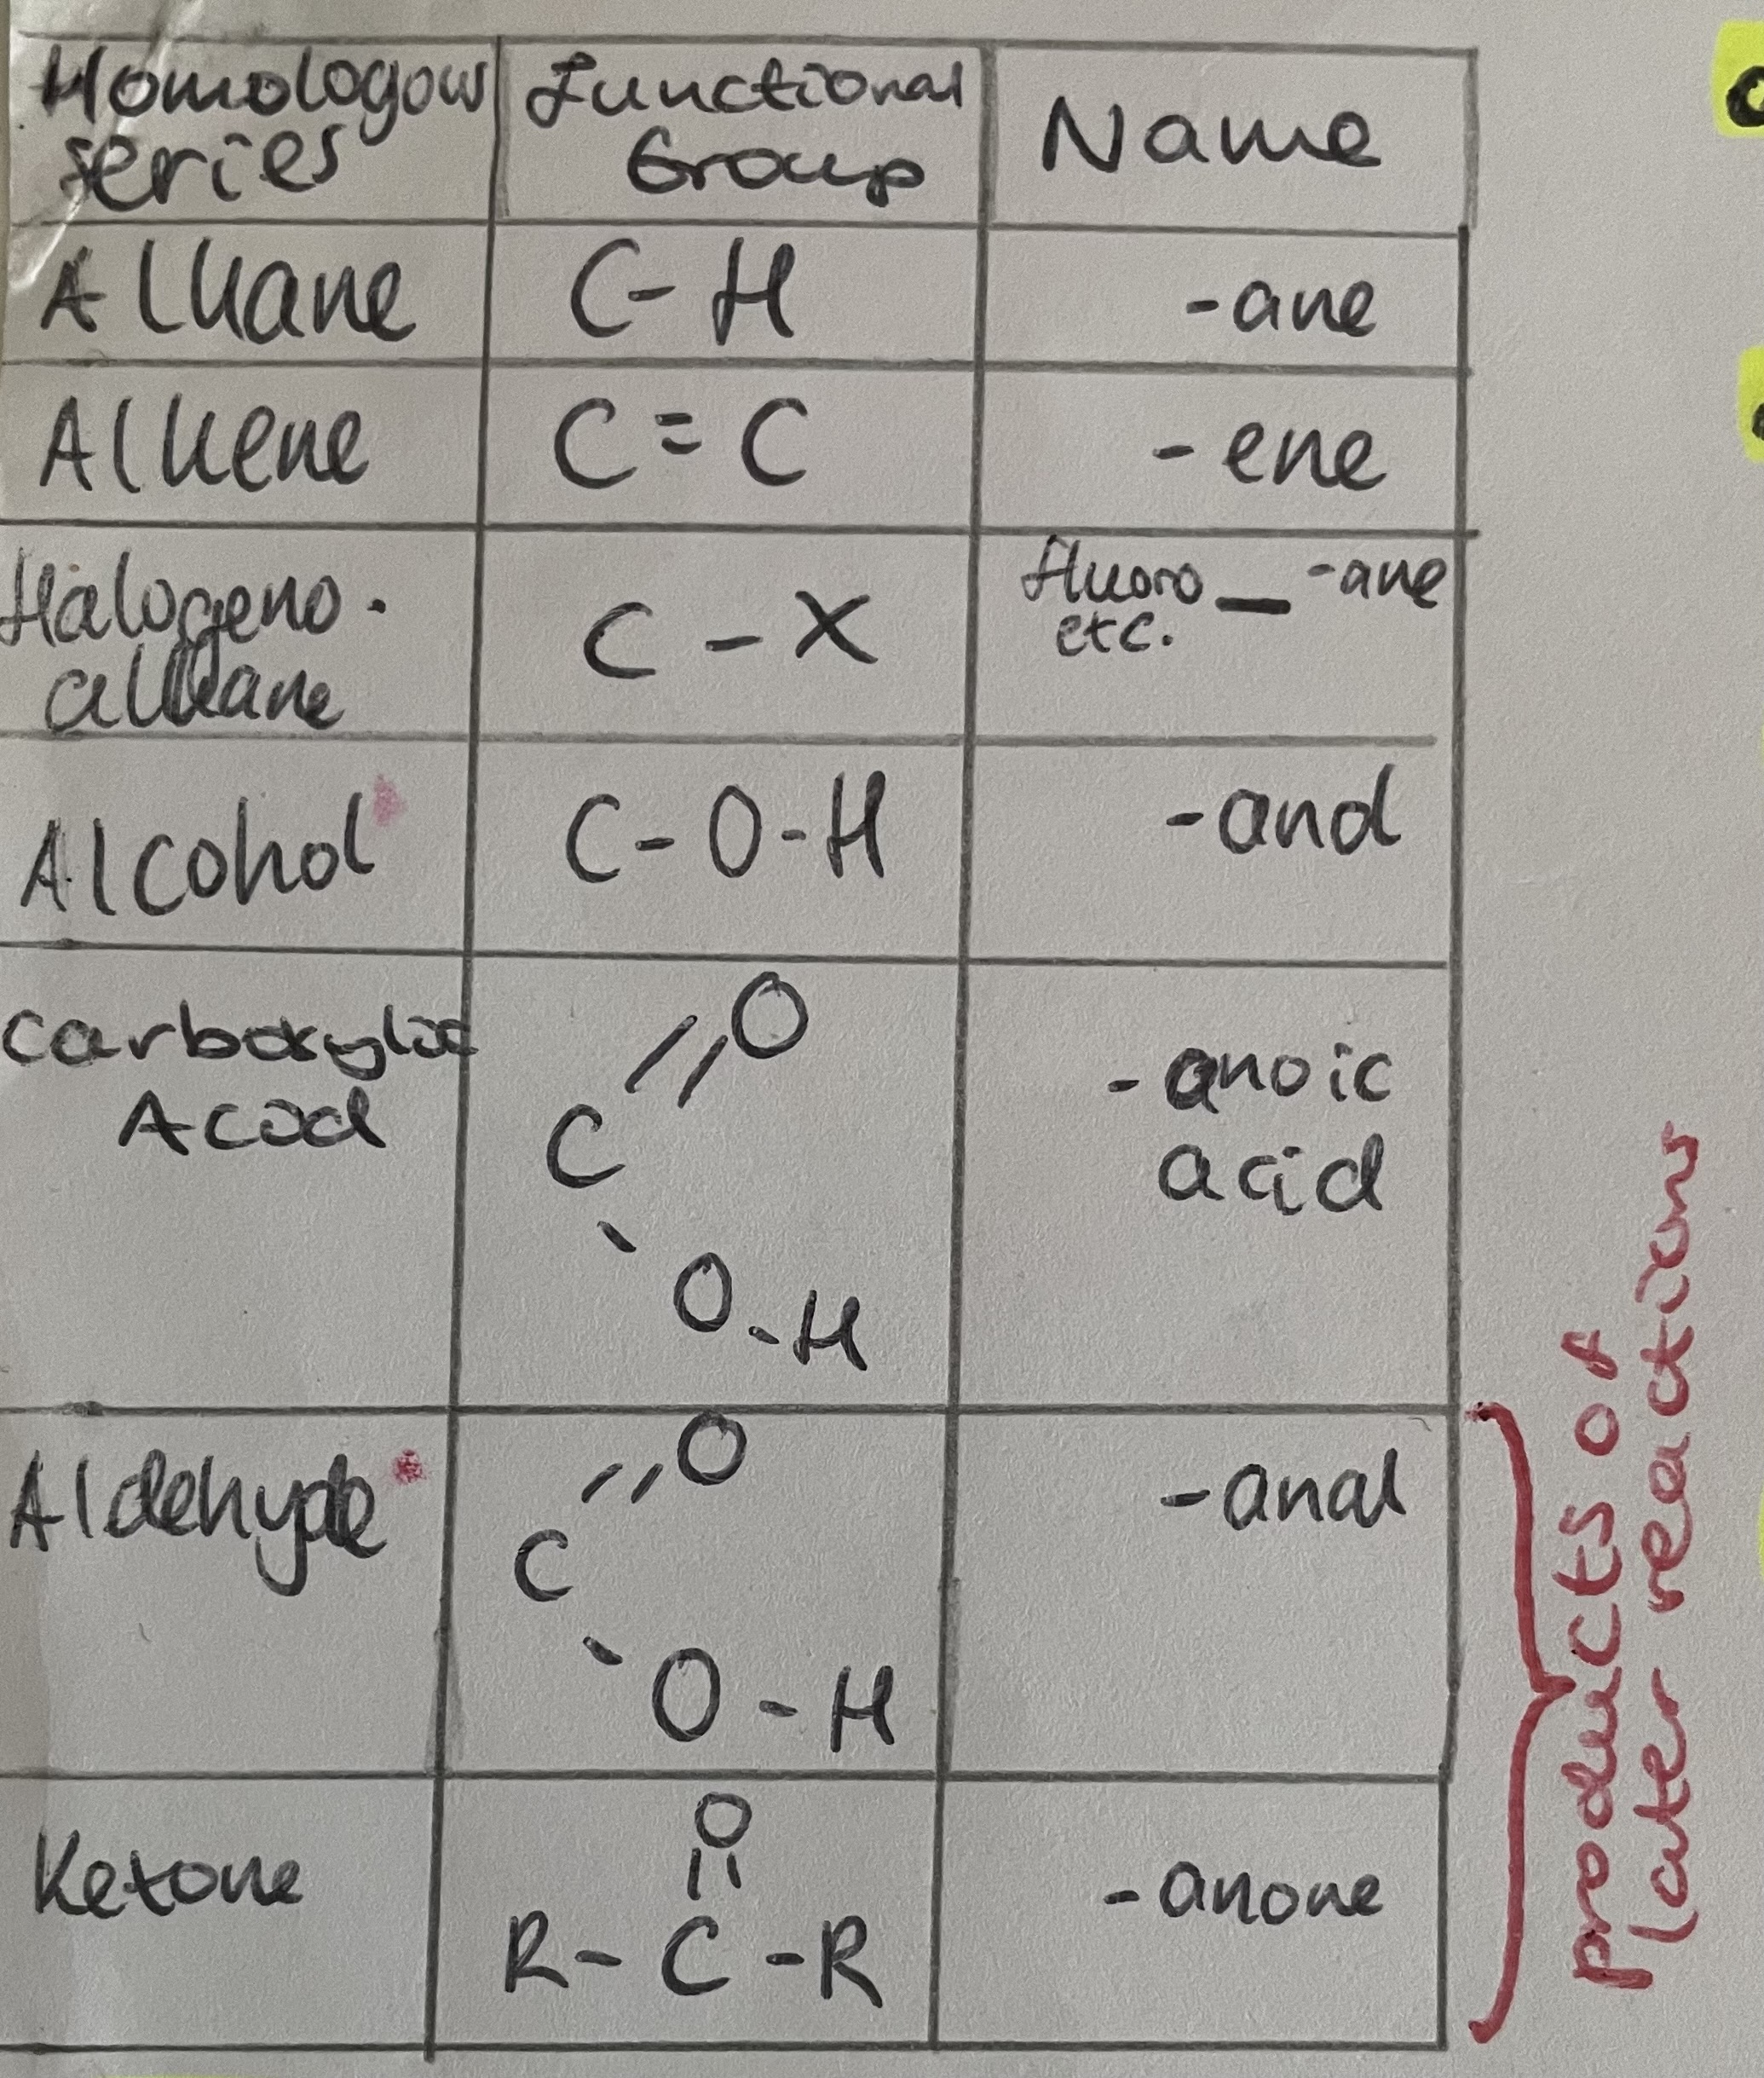 Homologous series
Functional Group
Name
Alkane
C-H
-ane
Alkene
C=C
-ene
Halogeno-
alkane
C-X
fluoro _ -ane
etc.
Alcohol
C-O-H
-anol
Carboxylic
Acid
=O
C
-O-H
-anoic
acid
Aldehyde
=O
C
-O-H
-anal
Ketone
O
=
R-C-R
-anone
products of
later reactions